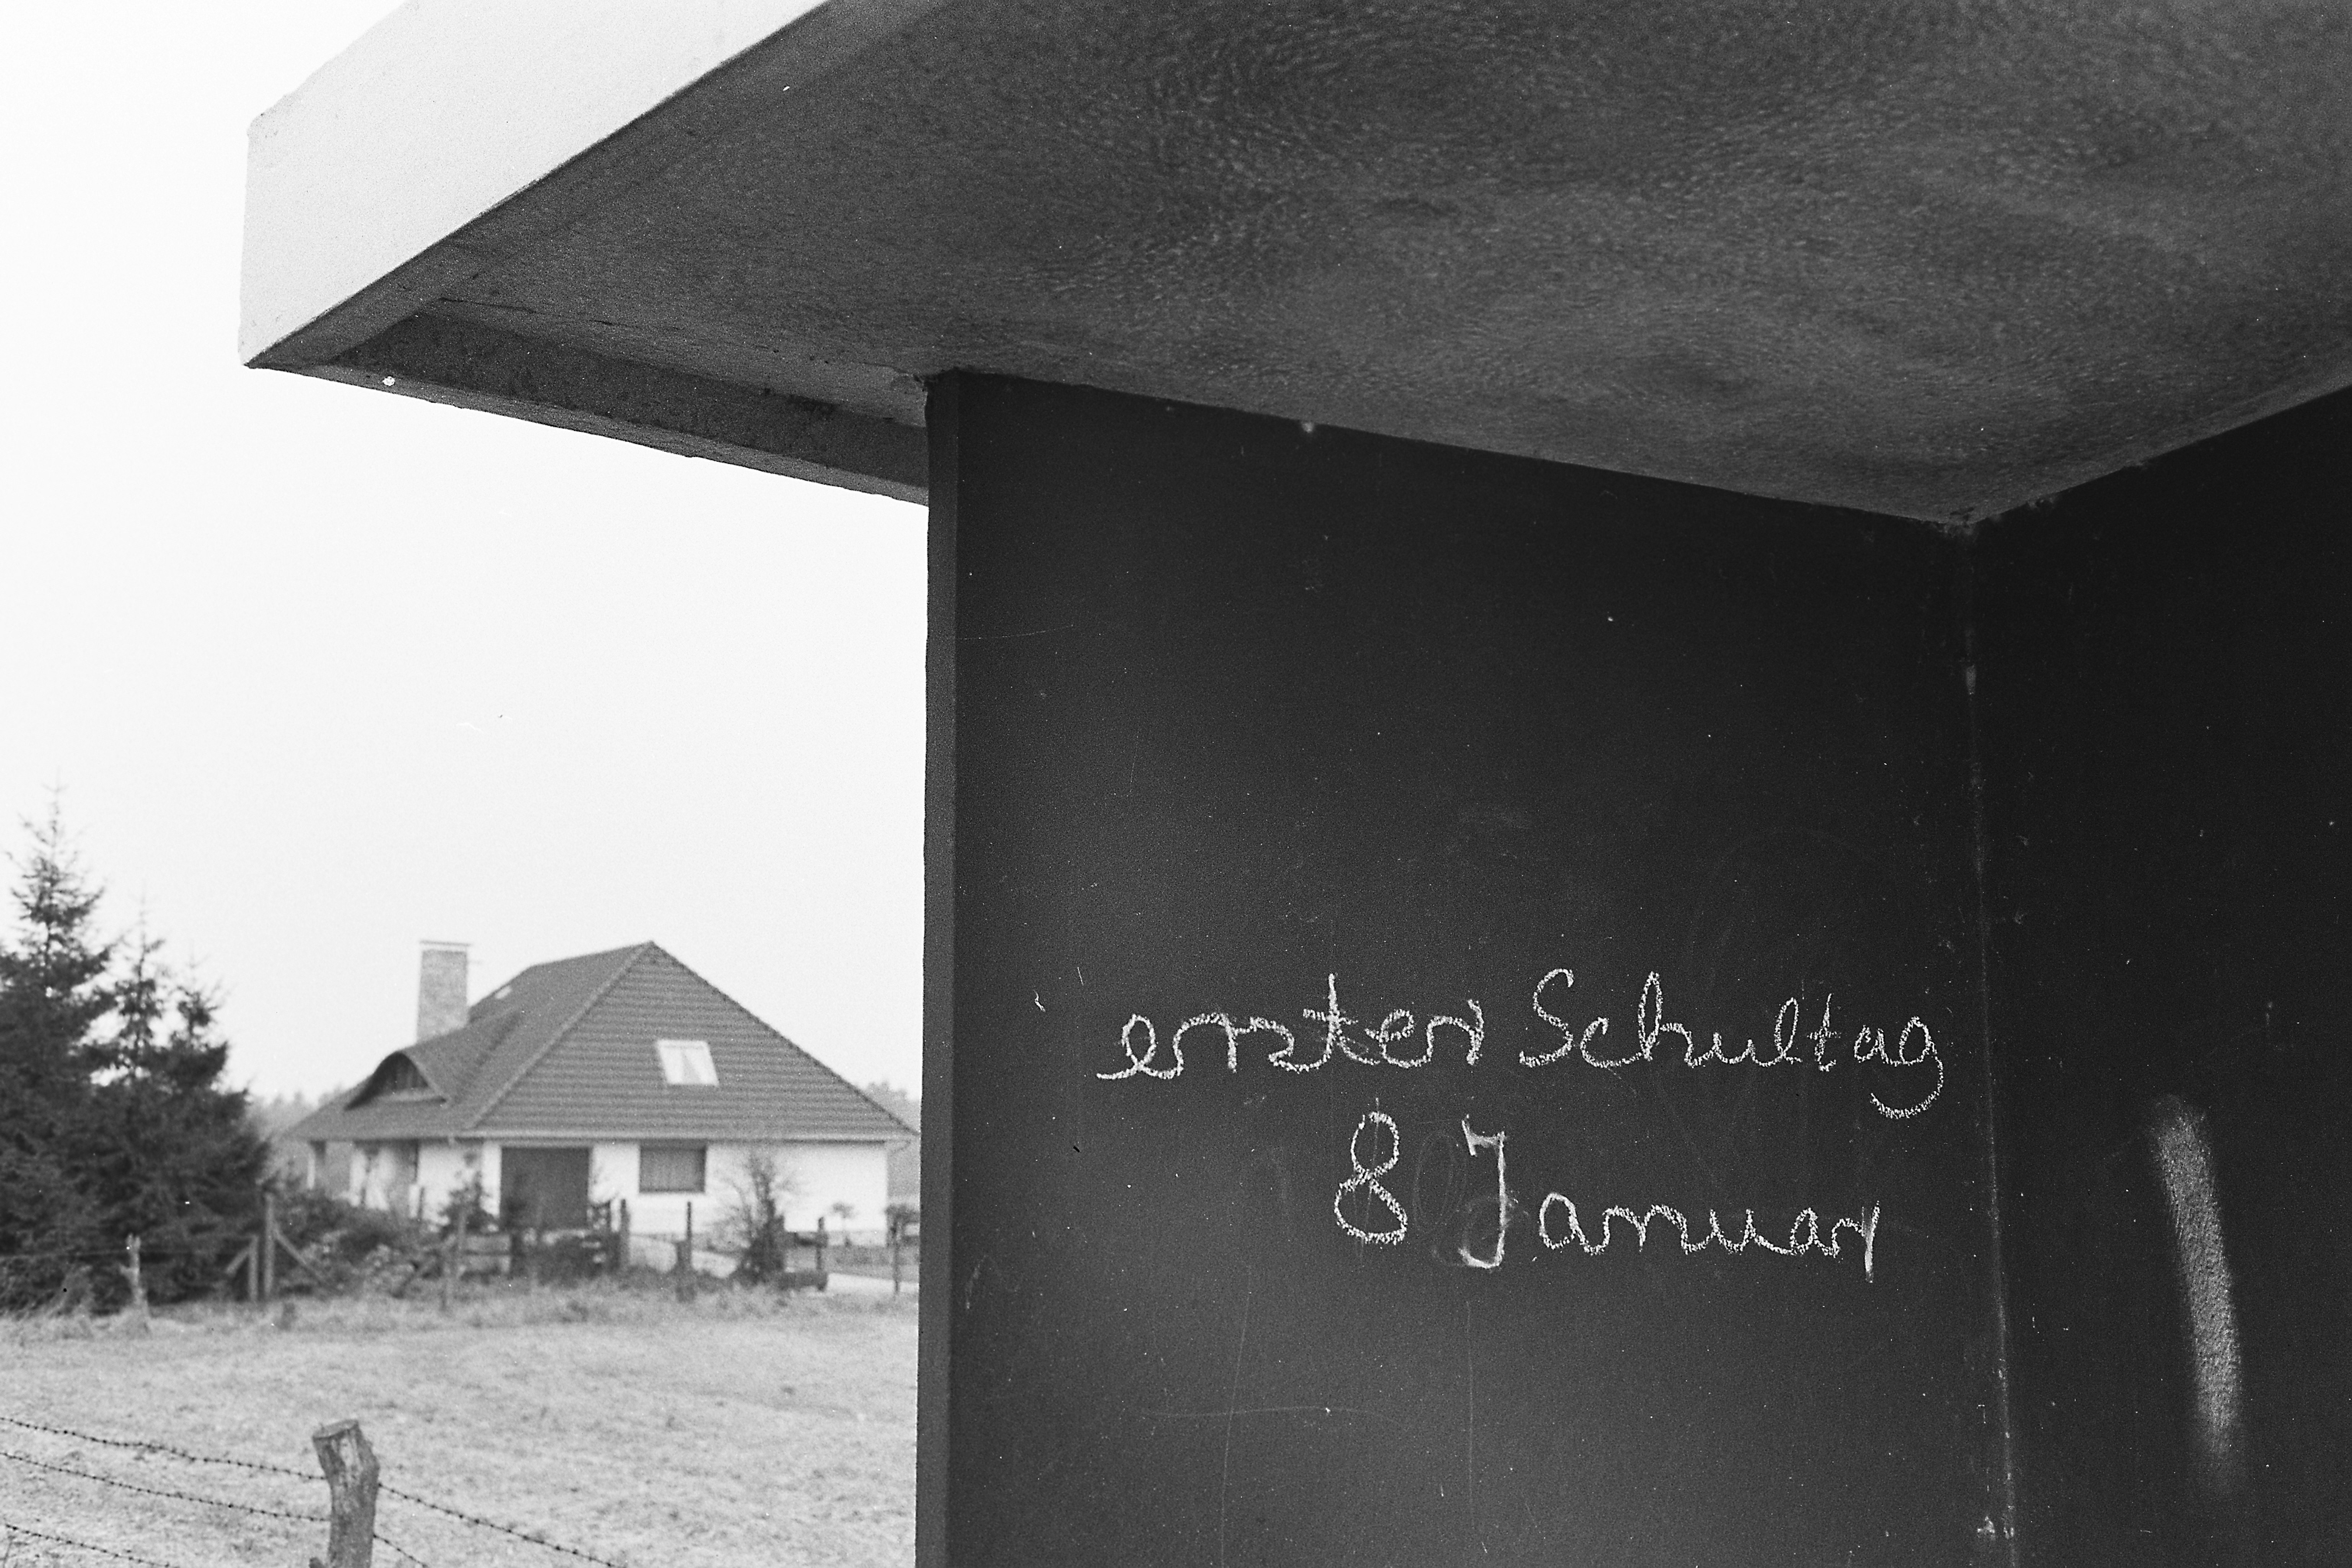 erster Schultag
8 Januar